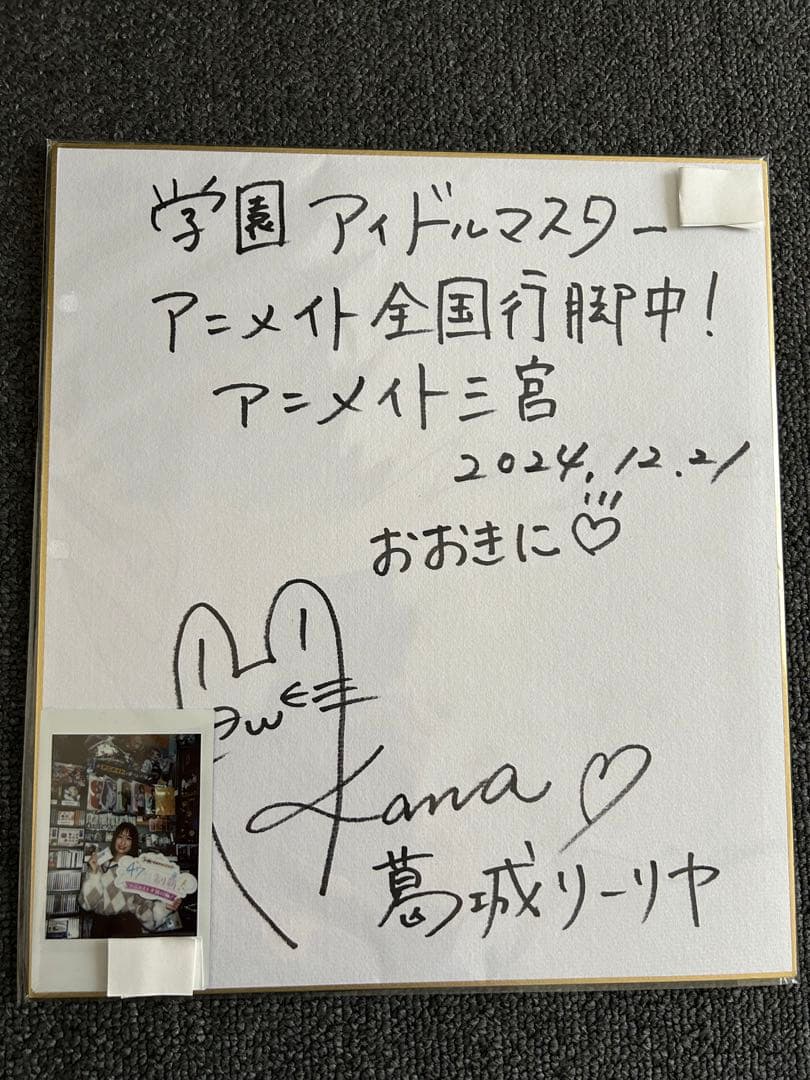 学園アイドルマスター
アニメイト全国行脚中!
アニメイト三宮
2024.12.21
おおきに♡
Kana♡
葛城リーリヤ
47